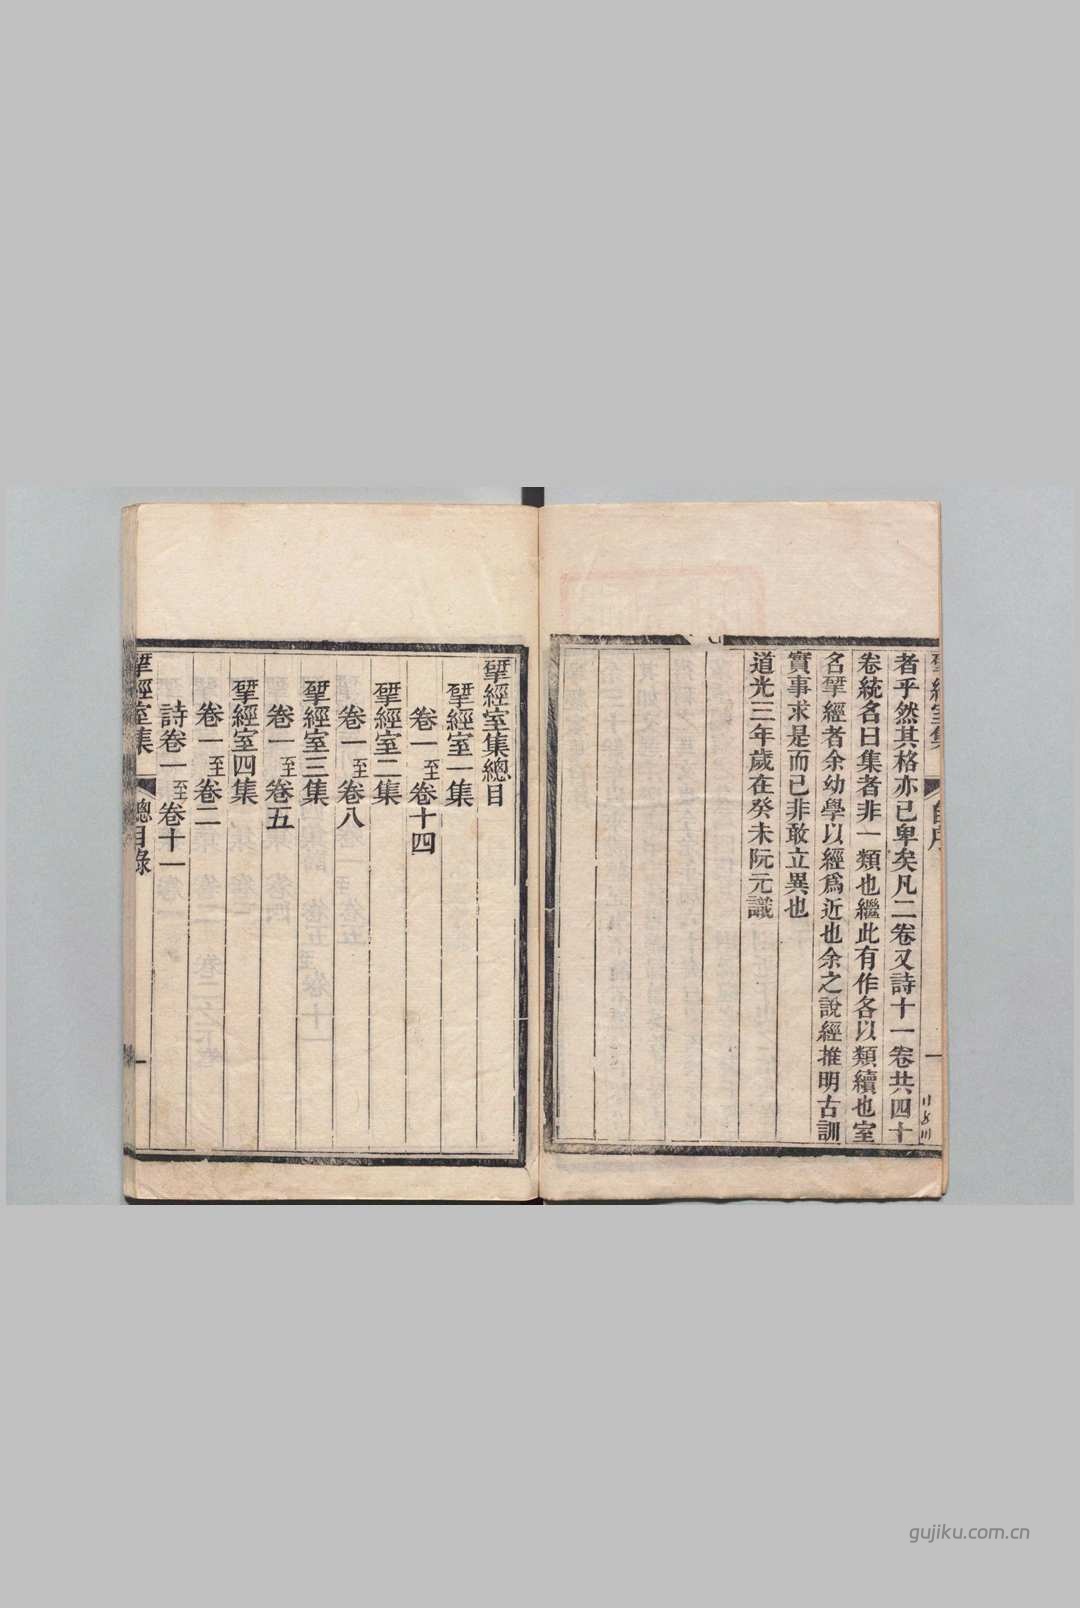 揅經室集 自序 一
者乎然其格亦已卑矣凡二卷又詩十一卷共四十
卷統名曰集者非一類也繼此有作各以類續也室
名揅經者余幼學以經爲近也余之說經推明古訓
實事求是而已非敢立異也
道光三年歲在癸未阮元識
揅經室集總目
揅經室一集
卷一至卷十四
揅經室二集
卷一至卷八
揅經室三集
卷一至卷五
揅經室四集
卷一至卷二
詩卷一至卷十一
揅經室集 總目錄 一
gujiku.com.cn